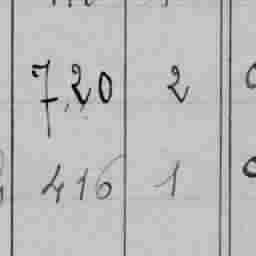 7.20 2
416 1